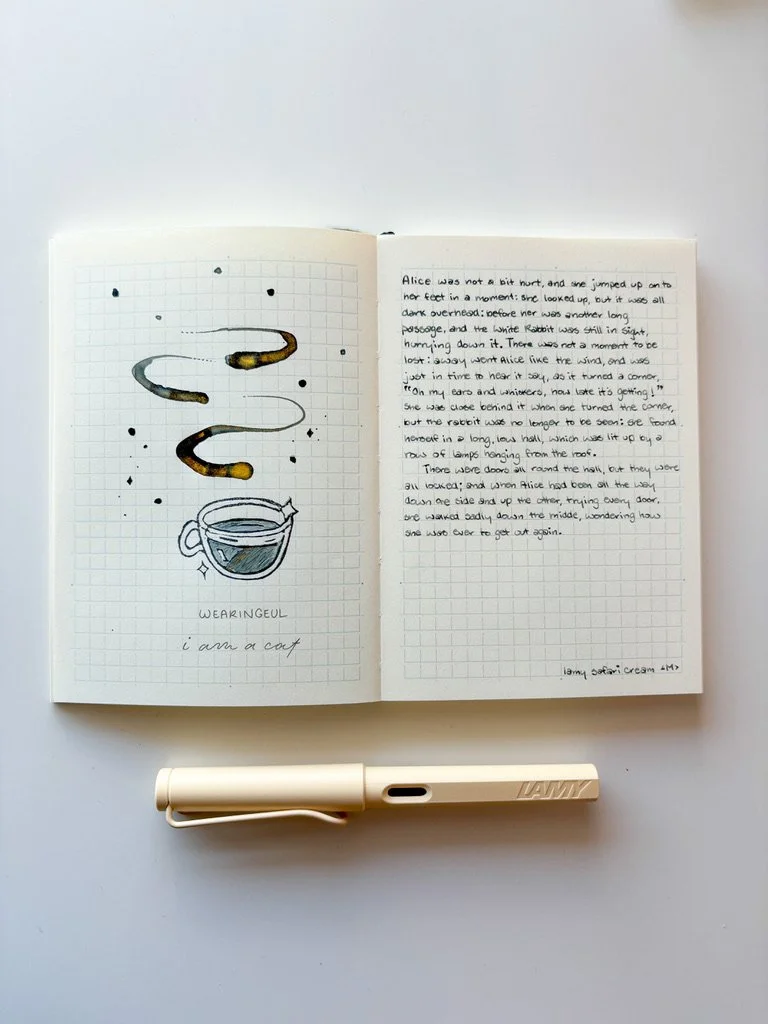 WEARINGEUL
i am a cat
Alice was not a bit hurt, and she jumped up on to
her feet in a moment: she looked up, but it was all
dark overhead: before her was another long
passage, and the White Rabbit was still in sight,
hurrying down it. There was not a moment to be
lost: away went Alice like the wind, and was
just in time to hear it say, as it turned a corner,
"Oh my ears and whiskers, how late it's getting!"
She was close behind it when she turned the corner,
but the rabbit was no longer to be seen: she found
herself in a long, low hall, which was lit up by a
row of lamps hanging from the roof.
There were doors all round the hall, but they were
all locked; and when Alice had been all the way
down one side and up the other, trying every door,
she walked sadly down the middle, wondering how
she was ever to get out again.
lamy safari cream <M>
LAMY